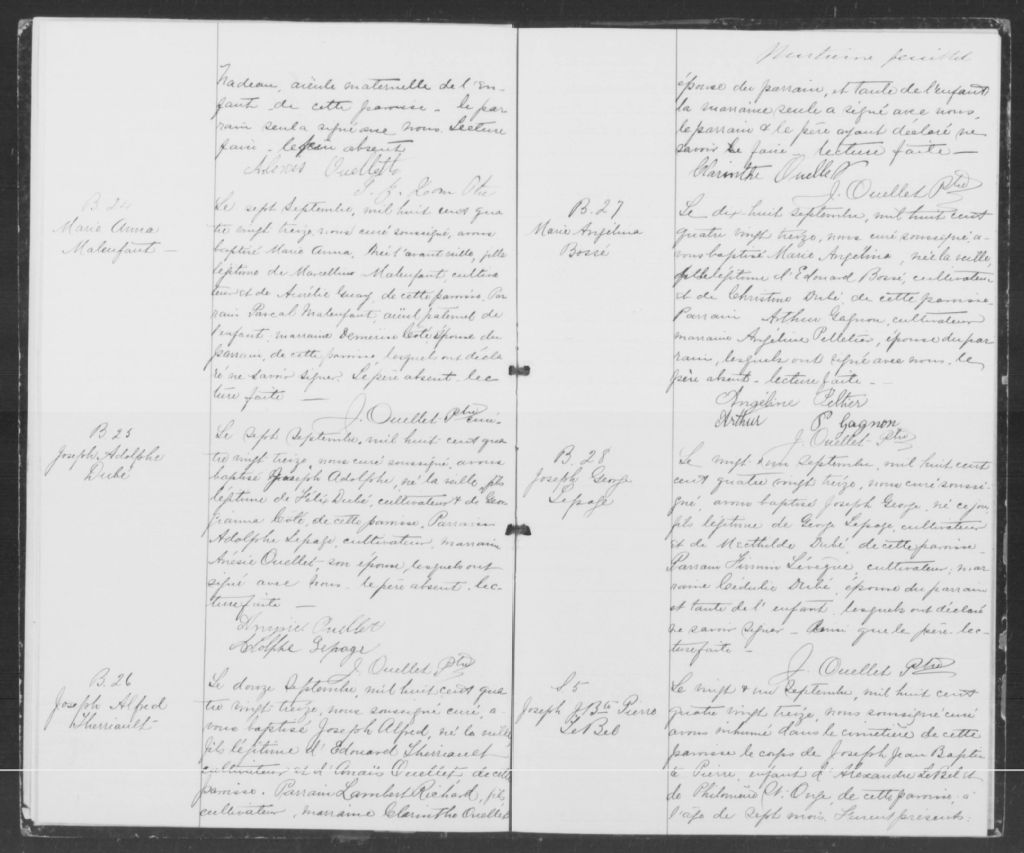 Nadeau, aieule maternelle de l'en-
fant de cette paroisse - le par
rain seul a signé avec nous. Lecture
faite - le père absent
Ouellette
B. 24
Marie Anna
Malenfant —
Le sept Septembre, mil huit cent qua
tre vingt treize, nous curé soussigné, avons
baptisé Marie Anna, née l'avant veille, fille
légitime de Marcellus Malenfant, cultiva
teur et de Aurélie Guay, de cette paroisse. Par
rain Pascal Malenfant, aïeul paternel de
l'enfant, marraine Démérise Coté épouse du
parrain, de cette paroisse lesquels ont décla
ré ne savoir signer. Le père absent - lec-
ture faite —
J. Ouellet Ptre curé.
B. 25
Joseph Adolphe
Dubé
Le sept Septembre, mil huit cent qua
tre vingt treize, nous curé soussigné, avons
baptisé Joseph Adolphe, né la veille, fils
légitime de Félix Dubé, cultivateur & de Geor
gianna Coté, de cette paroisse, Parrain
Adolphe Lepage, cultivateur, marraine
Ouellet, son épouse, lesquels ont
signé avec nous. le père absent. lec-
ture faite —
Ouellet
Adolphe Lepage
J. Ouellet Ptre
B. 26
Joseph Alfred
Therriault
Le douze Septembre, mil huit cent qua
tre vingt treize, nous soussigné curé, a-
vons baptisé Joseph Alfred, né la veille,
fils légitime d'Edouard Therriault
cultivateur et d'Anaïs Ouellet de cette
paroisse. Parrain Lambert Richard, fils,
cultivateur, marraine Clarinthe Ouellet
feuillet
épouse du parrain, et tante de l'enfant
la marraine seule a signé avec nous,
le parrain & le père ayant déclaré ne
savoir le faire - lecture faite —
Clarinthe Ouellet
J. Ouellet Ptre
B. 27
Marie Angelina
Bossé
Le dix huit septembre, mil huit cent
quatre vingt treize, nous curé soussigné a-
vons baptisé Marie Angelina, née la veille,
fille légitime d'Edouard Bossé, cultivateur
et de Christine Dubé, de cette paroisse.
Parrain Arthur Gagnon, cultivateur
marraine Angéline Pelletier, épouse du par-
rain, lesquels ont signé avec nous. le
père absent - lecture faite —
Angéline Peltier
Arthur P Gagnon
J. Ouellet Ptre
B. 28
Joseph George
Lepage
Le vingt septembre, mil huit cent
cent quatre vingt treize, nous curé soussi-
gné, avons baptisé Joseph George, né ce jour
fils légitime de George Lepage, cultivateur
et de Mathilde Dubé, de cette paroisse
Parrain Firmin Lévêque, cultivateur, mar
raine Cédulie Dubé, épouse du parrain
et tante de l'enfant, lesquels ont déclaré
ne savoir signer - Ainsi que le père. lec-
ture faite —
J. Ouellet Ptre
S. 5
Joseph J. Bte Pierre
LeBel
Le vingt & un Septembre, mil huit cent
quatre vingt treize, nous soussigné curé
avons inhumé dans le cimetière de cette
paroisse le corps de Joseph Jean Baptis-
te Pierre, enfant d'Alexandre LeBel et
de Philomène St. Onge, de cette paroisse, à
l'âge de sept mois. Furent presents: